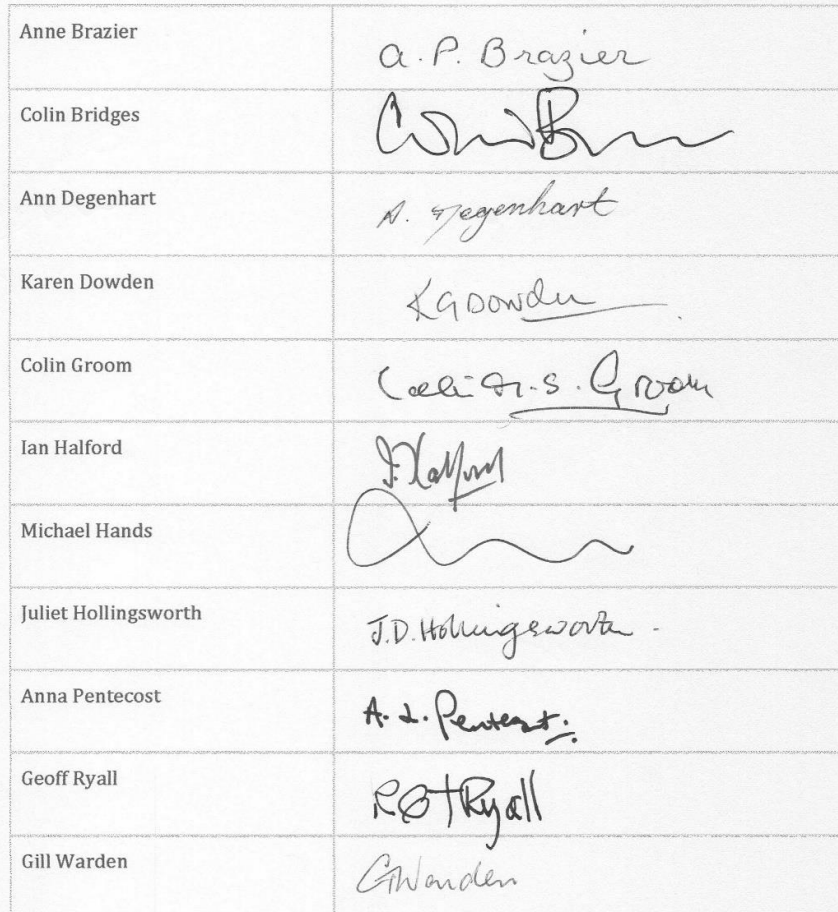 Anne Brazier
a. P. Brazier
Colin Bridges
Ann Degenhart
A. Degenhart
Karen Dowden
KGDowden
Colin Groom
Colin S. Groom
Ian Halford
I. Halford
Michael Hands
Juliet Hollingsworth
J.D. Hollingsworth
Anna Pentecost
A. L. Pentecost.
Geoff Ryall
Ryall
Gill Warden
GWarden